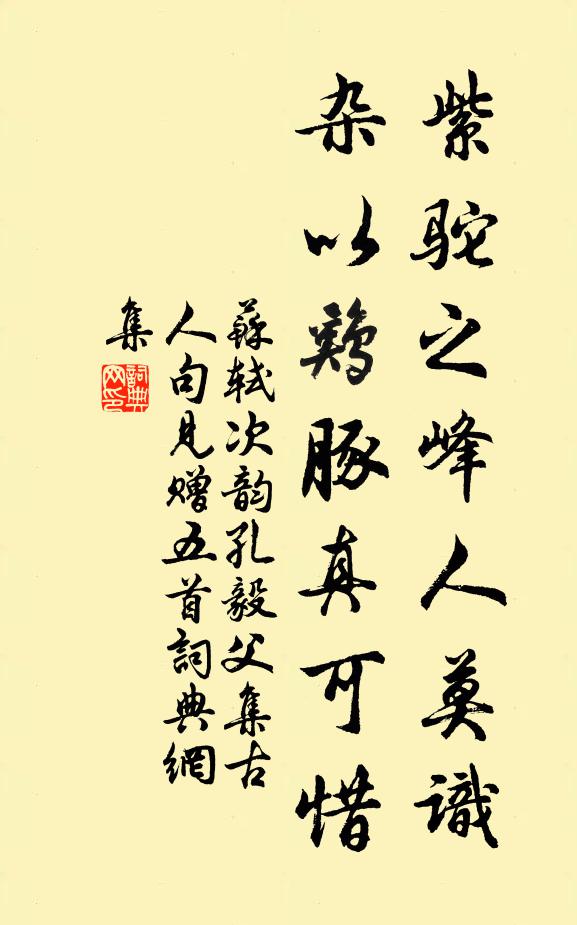 紫駝之峰人莫識
杂以鷄豚真可惜
蘇軾次韵孔毅父集古
人句見赠五首詞典網
集
詞典
网印